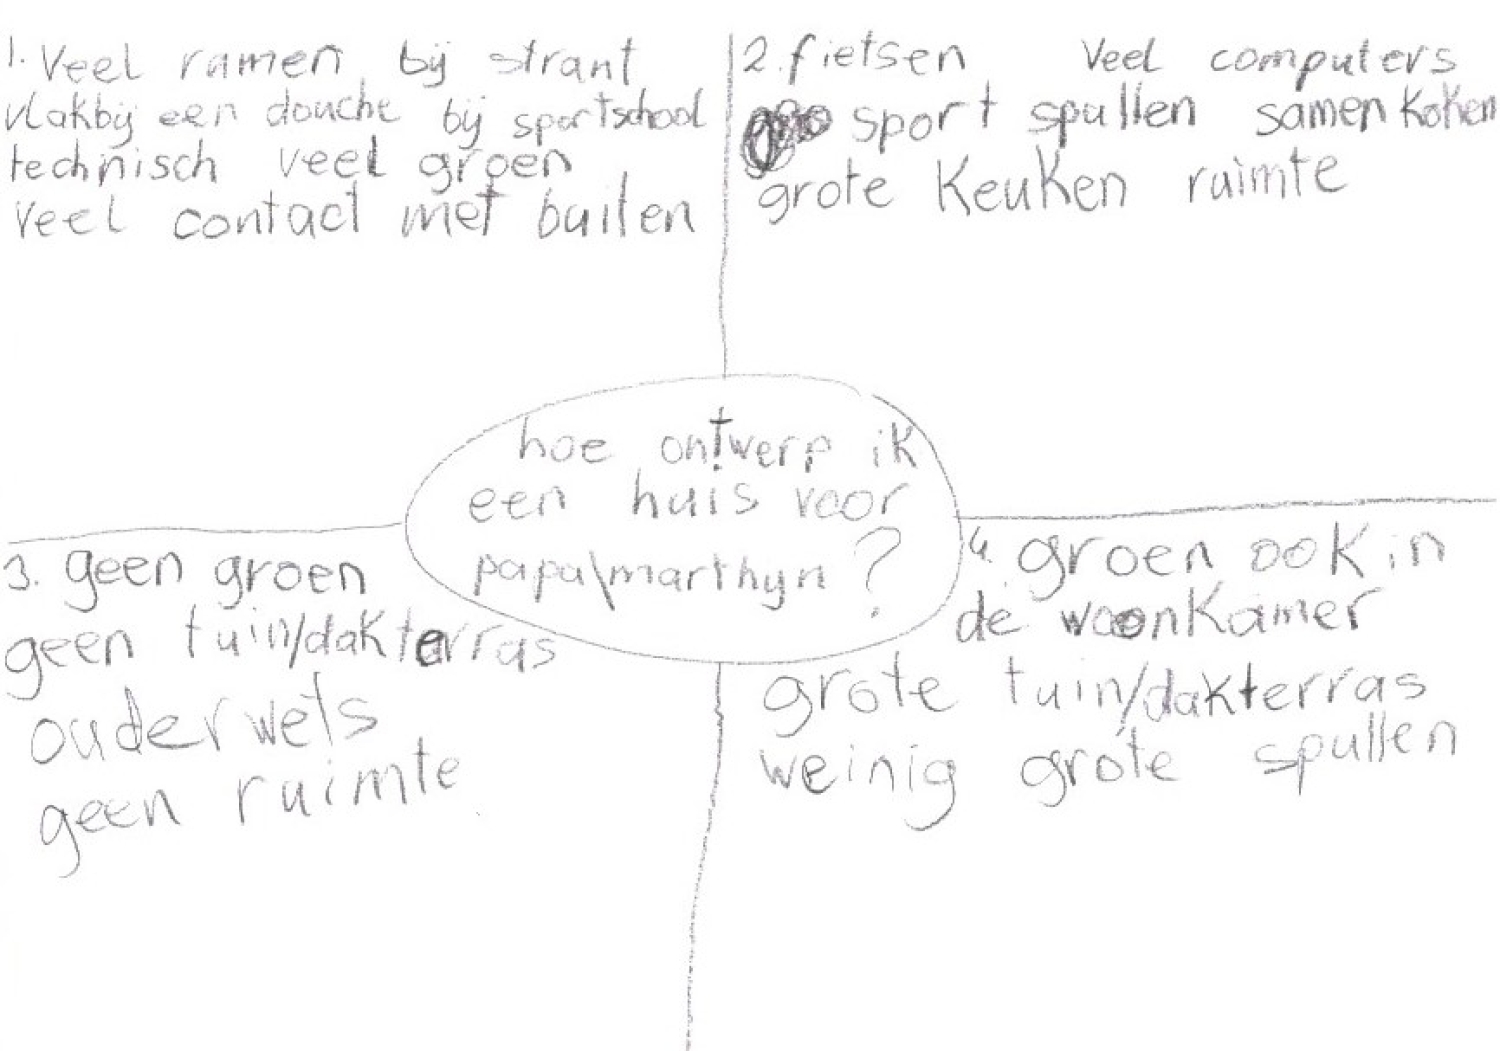 1. Veel ramen bij strant
vlakbij een douche bij sportschool
technisch veel groen
veel contact met buiten
2. fietsen veel computers
sport spullen samen koken
grote keuken ruimte
hoe ontwerp ik
een huis voor
papa\marthyn ?
3. geen groen
geen tuin/dakterras
ouderwets
geen ruimte
4. groen ook in
de woonkamer
grote tuin/dakterras
weinig grote spullen